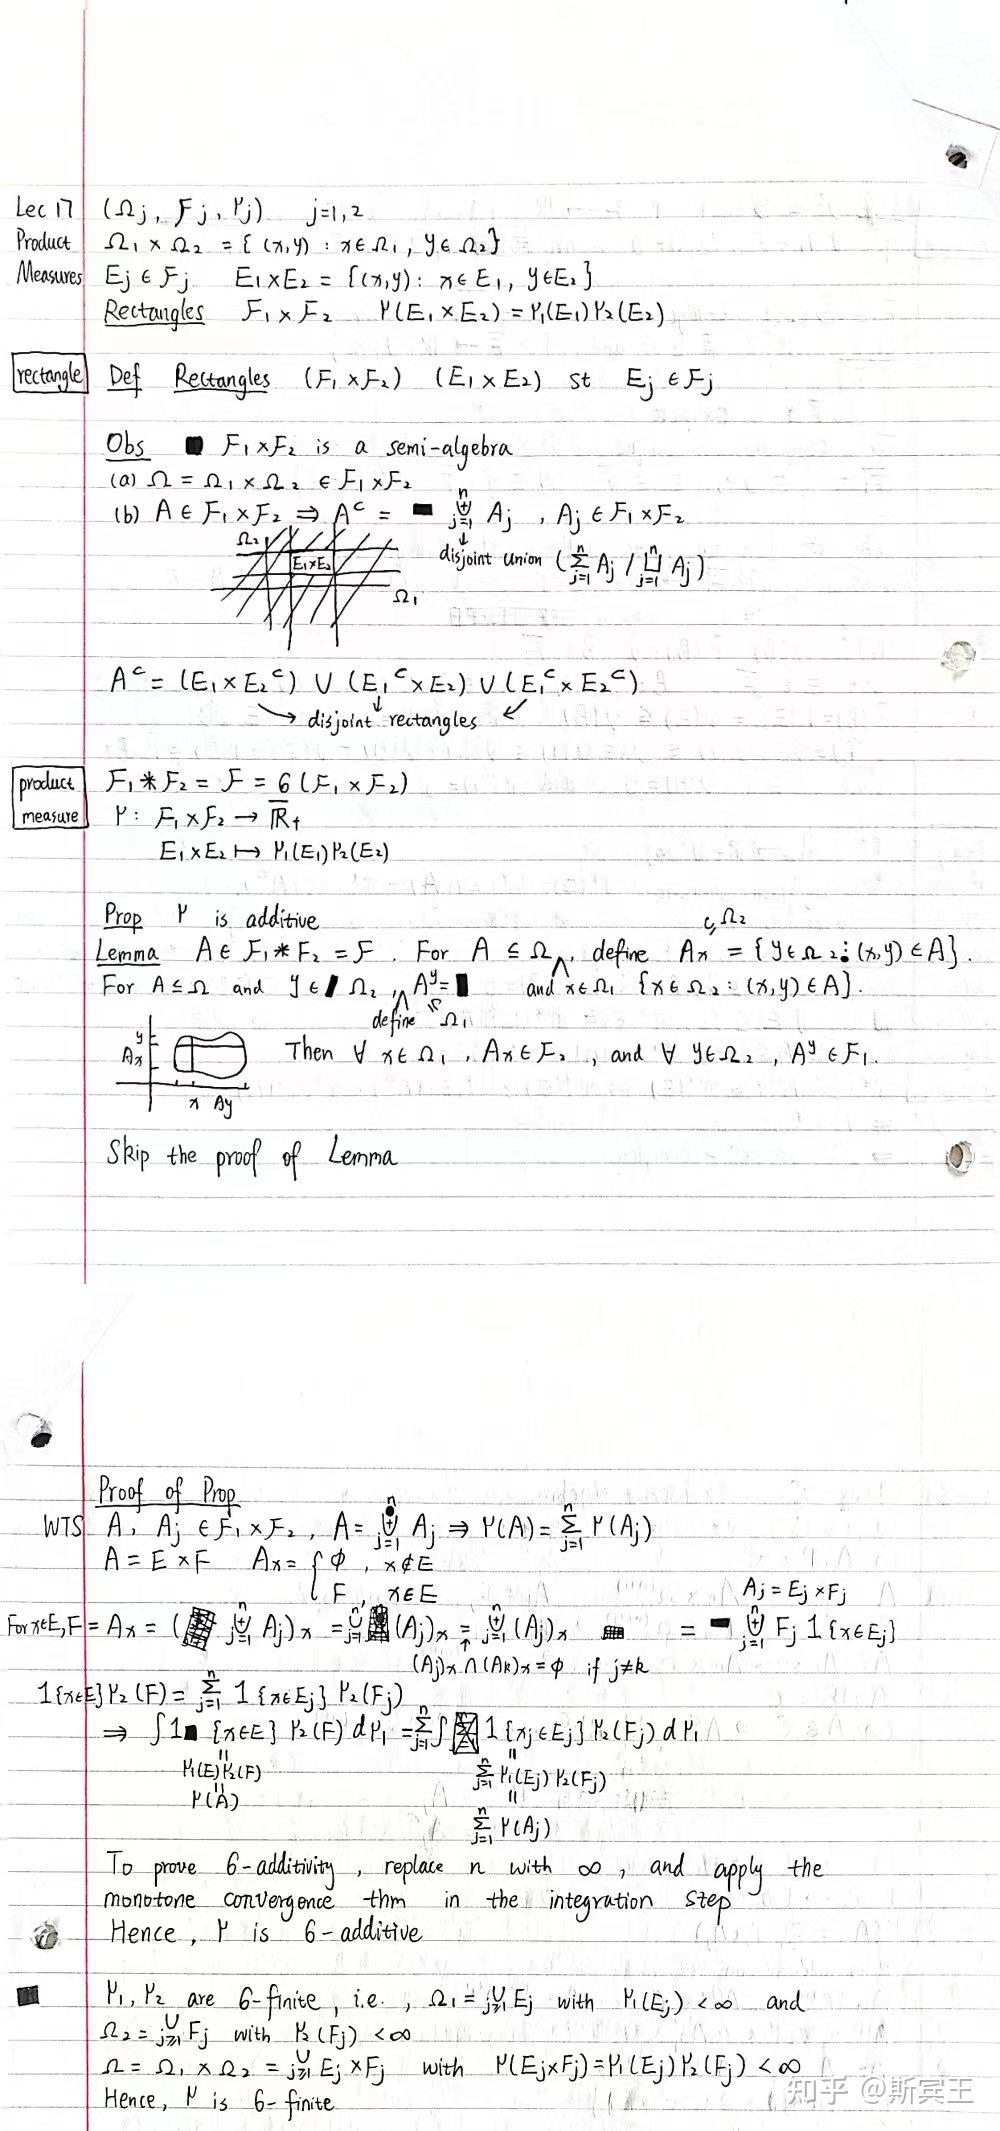 Lec 17 (Ωj, Fj, μj) j=1,2
Product Ω₁ × Ω₂ = { (x,y) : x∈Ω₁, y∈Ω₂}
Measures Ej ∈ Fj E₁×E₂ = {(x,y): x∈E₁, y∈E₂}
Rectangles F₁×F₂ μ(E₁×E₂)=μ₁(E₁)μ₂(E₂)
rectangle Def Rectangles (F₁×F₂) (E₁×E₂) st Ej ∈ Fj
Obs F₁×F₂ is a semi-algebra
(a) Ω = Ω₁×Ω₂ ∈ F₁×F₂
(b) A∈F₁×F₂ ⇒ Aᶜ = ⊎_{j=1}^{n} Aj , Aj∈F₁×F₂
disjoint union (∑_{j=1}^{n} Aj / ⊔_{j=1}^{n} Aj)
Ω₂
E₁×E₂
Ω₁
Aᶜ = (E₁×E₂ᶜ) ∪ (E₁ᶜ×E₂) ∪ (E₁ᶜ×E₂ᶜ)
→ disjoint rectangles
product F₁*F₂ = F = б(F₁×F₂)
measure μ: F₁×F₂ → R̄₊
E₁×E₂ ↦ μ₁(E₁)μ₂(E₂)
Prop μ is additive
⊆ Ω₂
Lemma A∈F₁*F₂=F. For A⊆Ω, define Ax = {y∈Ω₂:(x,y)∈A}.
For A⊆Ω and y∈Ω₂, Aʸ= and x∈Ω₁ {x∈Ω₂:(x,y)∈A}.
define Ω₁
y
Ax
x Ay
Then ∀ x∈Ω₁, Ax∈F₂, and ∀ y∈Ω₂, Aʸ∈F₁.
Skip the proof of Lemma
Proof of Prop
WTS A, Aj ∈F₁×F₂, A= ⊎_{j=1}^{n} Aj ⇒ μ(A)= ∑_{j=1}^{n} μ(Aj)
A=E×F Ax= { ϕ, x∉E
F, x∈E
Aj=Ej×Fj
For x∈E, F=Ax=(⊎_{j=1}^{n} Aj)x = ∪_{j=1}^{n}(Aj)x = ⊎_{j=1}^{n}(Aj)x = ⊎_{j=1}^{n} Fj 1{x∈Ej}
(Aj)x∩(Ak)x=ϕ if j≠k
1{x∈E}μ₂(F)=∑_{j=1}^{n} 1{x∈Ej} μ₂(Fj)
⇒ ∫1{x∈E} μ₂(F)dμ₁ =∑_{j=1}^{n}∫1{xj∈Ej}μ₂(Fj)dμ₁
= μ₁(E)μ₂(F) = ∑_{j=1}^{n} μ₁(Ej)μ₂(Fj)
= μ(A) = ∑_{j=1}^{n} μ(Aj)
To prove б-additivity, replace n with ∞, and apply the
monotone convergence thm in the integration step
Hence, μ is б-additive
μ₁, μ₂ are б-finite, i.e., Ω₁=∪_{j≥1}Ej with μ₁(Ej)<∞ and
Ω₂=∪_{j≥1}Fj with μ₂(Fj)<∞
Ω=Ω₁×Ω₂=∪_{j≥1}Ej×Fj with μ(Ej×Fj)=μ₁(Ej)μ₂(Fj)<∞
Hence, μ is б-finite
知乎 @斯宾王